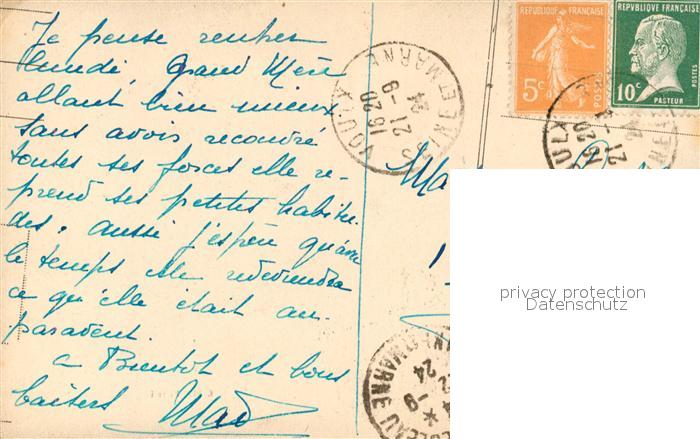 Je pense rentrer
lundi, Grand Mère
allant bien mieux
sans avoir recouvré
toutes ses forces elle re-
prend ses petites habitu-
des. aussi j'espère qu'avec
le temps elle redeviendra
ce qu'elle était au-
paravent.
a Bientôt et bons
baisers Mad
REPUBLIQUE FRANÇAISE
5c
REPVBLIQVE FRANÇAISE
10c
POSTES
PASTEUR
VOULX
SNE ET MARNE
1520
21-9
24
privacy protection
Datenschutz